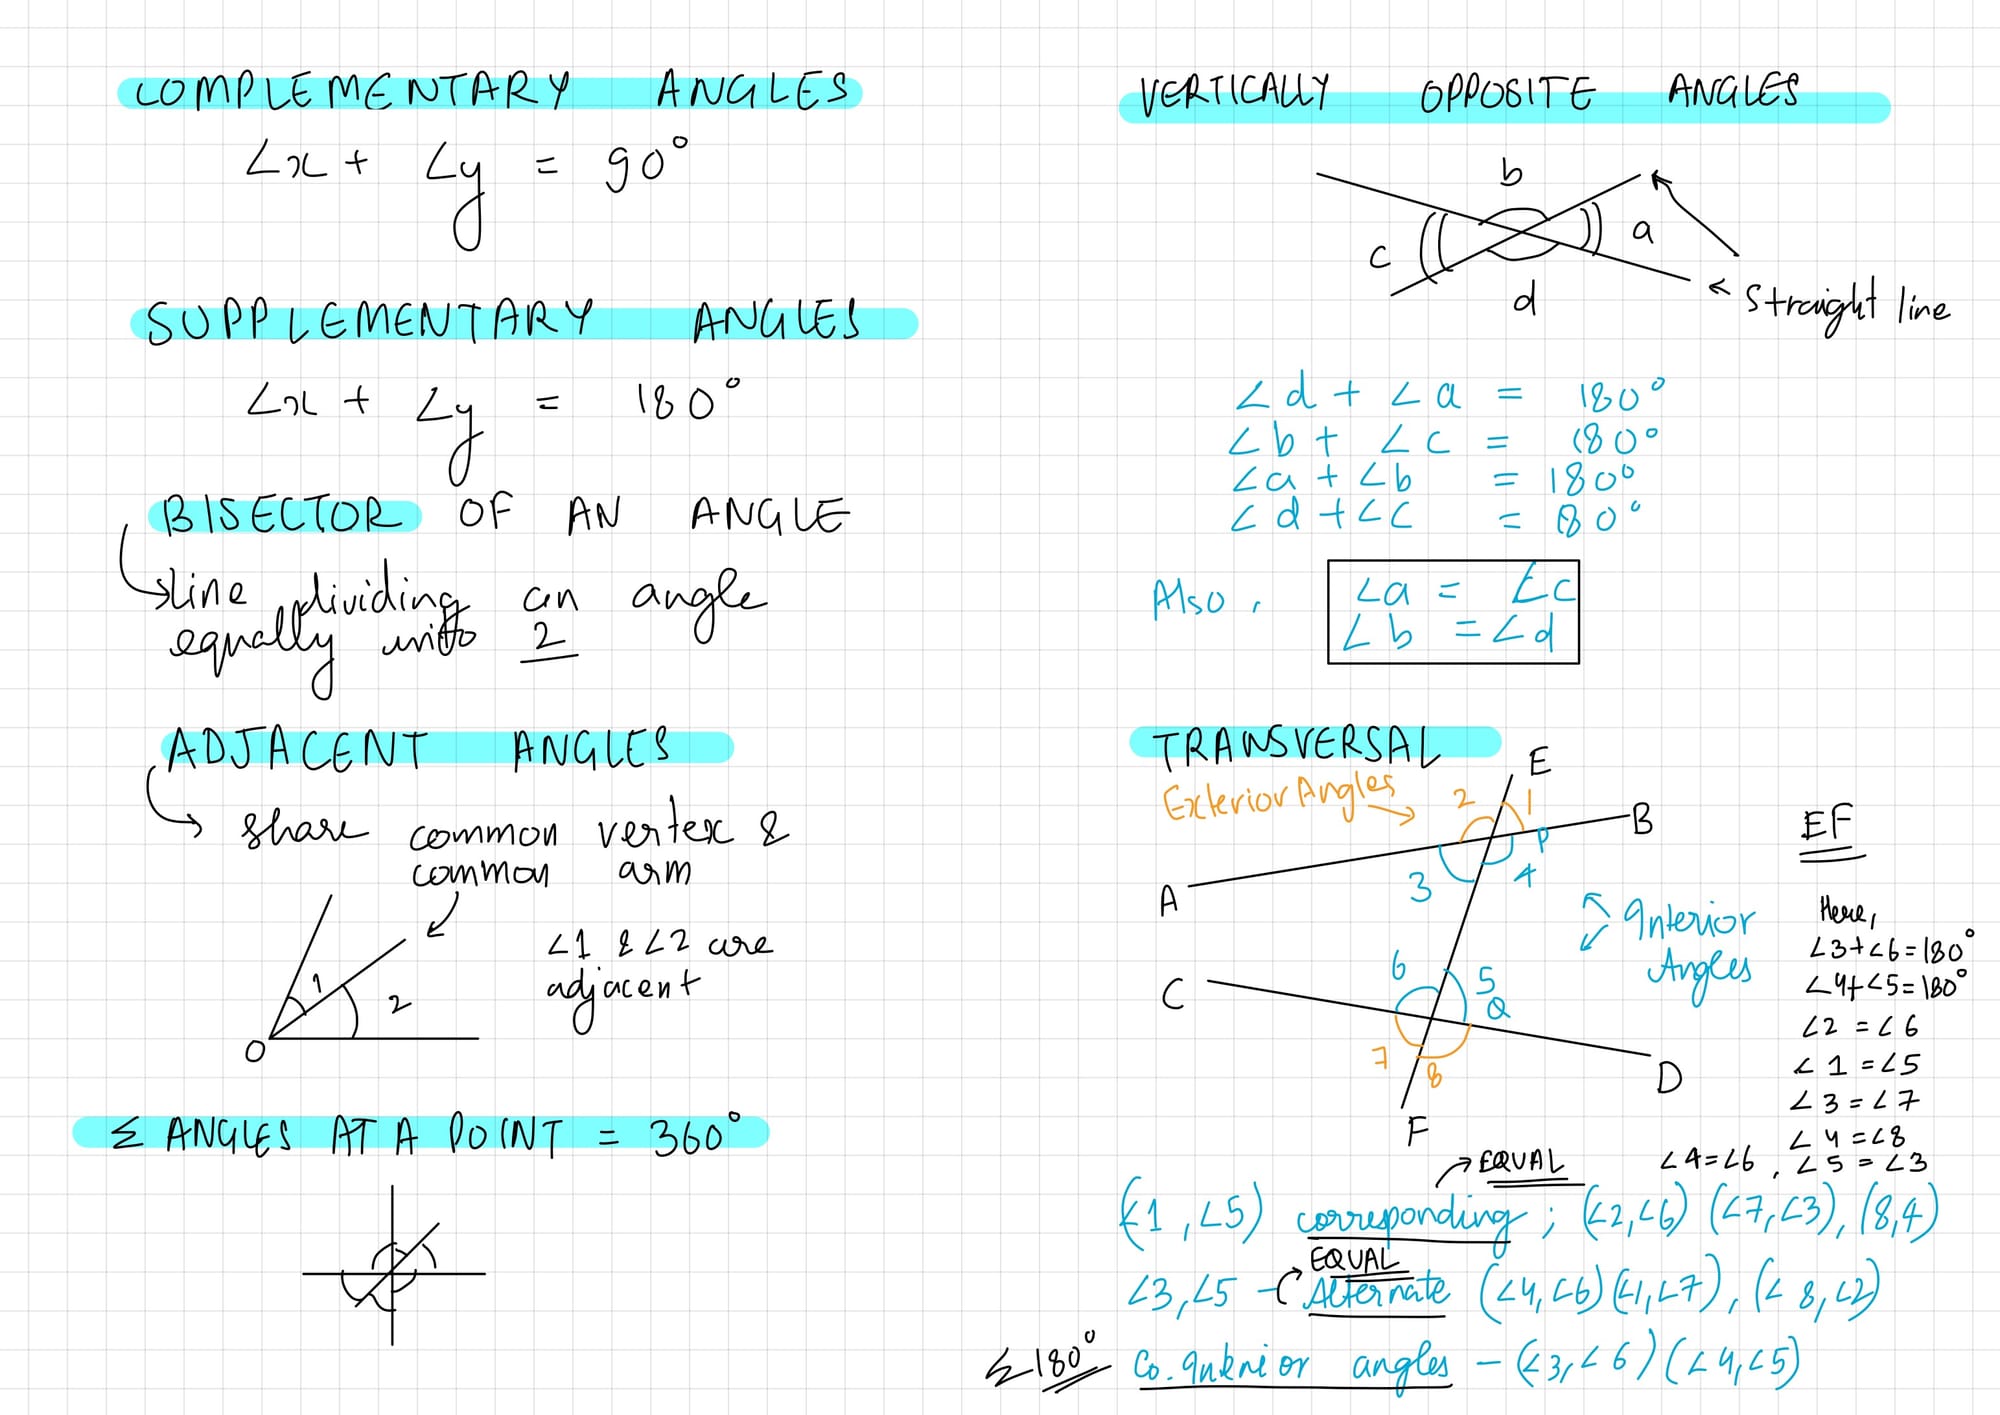 COMPLEMENTARY ANGLES
∠x + ∠y = 90°
SUPPLEMENTARY ANGLES
∠x + ∠y = 180°
BISECTOR OF AN ANGLE
line dividing an angle
equally into 2
ADJACENT ANGLES
share common vertex &
common arm
∠1 & ∠2 are
adjacent
1
2
O
Σ ANGLES AT A POINT = 360°
VERTICALLY OPPOSITE ANGLES
b
a
c
d
straight line
∠d + ∠a = 180°
∠b + ∠c = 180°
∠a + ∠b = 180°
∠d + ∠c = 180°
Also, ∠a = ∠c
∠b = ∠d
TRANSVERSAL
E
Exterior Angles
2
1
B
P
EF
3
4
A
Interior
Angles
Here,
∠3+∠6=180°
∠4+∠5=180°
∠2 = ∠6
∠1 = ∠5
∠3 = ∠7
∠4 = ∠8
∠4=∠6, ∠5 = ∠3
6
5
C
Q
7
8
D
F
EQUAL
(∠1, ∠5) corresponding; (∠2,∠6) (∠7,∠3), (8,4)
EQUAL
∠3,∠5 - Alternate (∠4,∠6) (∠1,∠7), (∠8,∠2)
Σ 180° Co. interior angles - (∠3,∠6) (∠4,∠5)